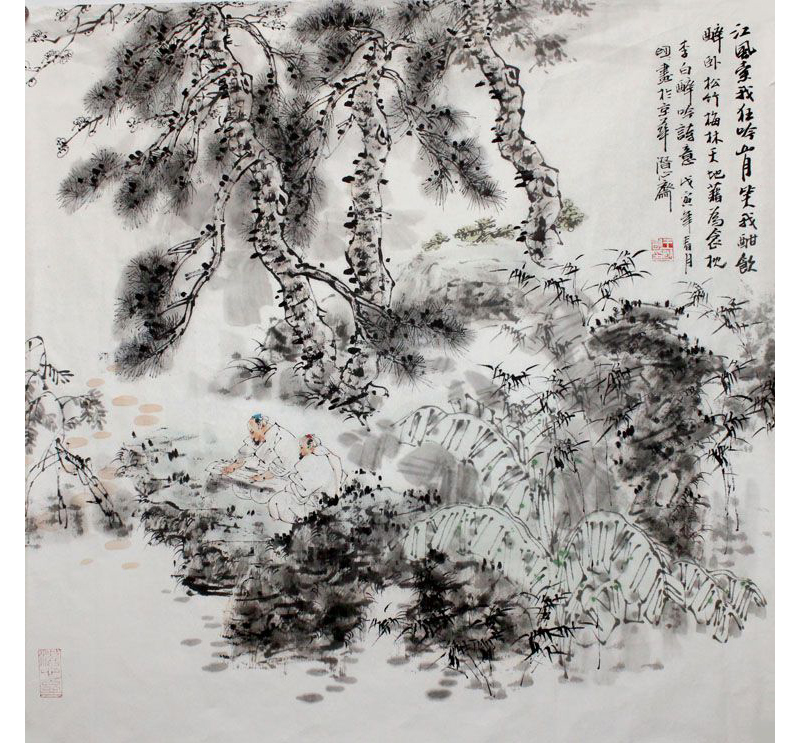 江風索我狂吟山月笑我酣飲
醉卧松竹梅林天地藉為衾枕
李白醉吟詩意戊寅年春月
國畫於京華潛心齋